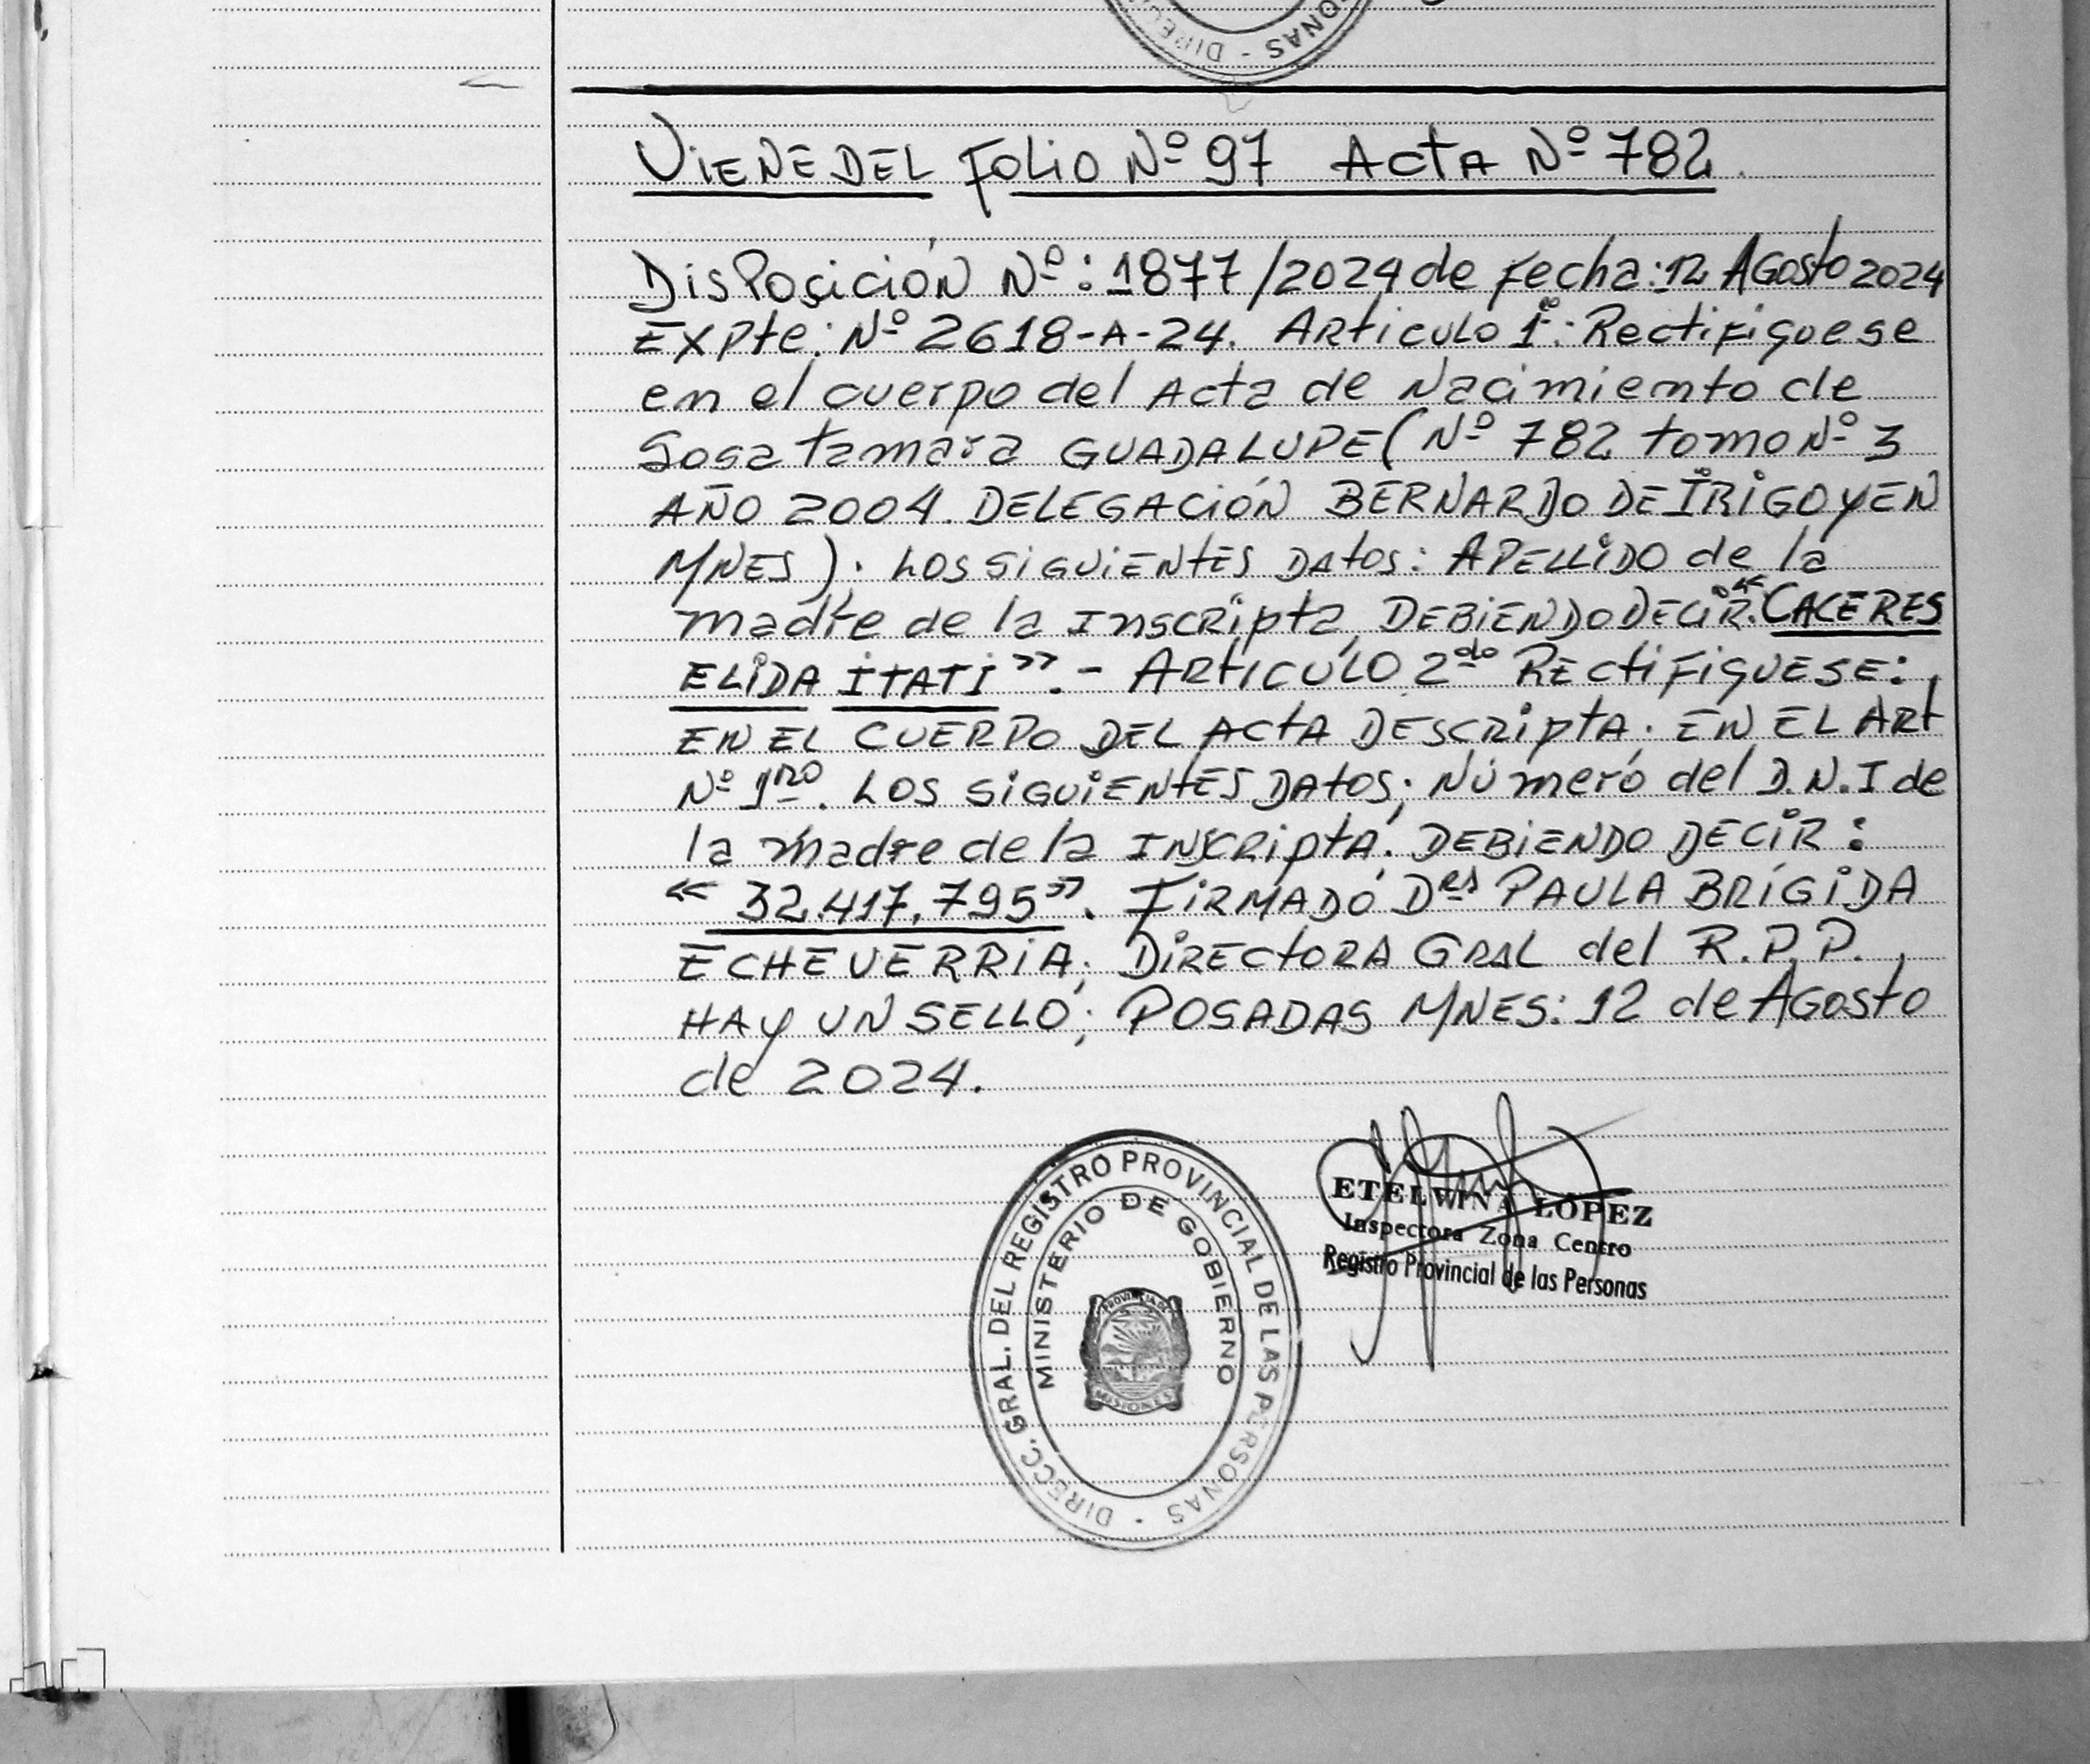 DIRECC
PERSONAS - DIRECC
VIENE DEL FOLIO Nº 97 ACTA Nº 782.
DISPOSICIÓN Nº: 1877/2024 de fecha: 12 AGOSTO 2024
EXPte: Nº 2618-A-24. ARticulo 1º: Rectifiquese
en el cuerpo del Acta de Nacimiento de
Sosa tamara GUADALUPE (Nº 782 tomo Nº 3
AÑO 2004. DELEGACIÓN BERNARDO DE IRIGOYEN
MNES). LOS SIGUIENTES DATOS: APELLIDO de la
madre de la Inscripta, DEBIENDO DECIR: "CACERES
ELIDA ITATI". - ARTICULO 2do RECTIFIQUESE:
EN EL CUERPO DEL ACTA DESCRIPTA. EN EL ART
Nº 1ro. LOS SIGUIENTES DATOS; Número del D.N.I de
la madre de la INSCRIPTA. DEBIENDO DECIR:
"32.417.795". FIRMADO Dra PAULA BRÍGIDA
ECHEVERRIA; DIRECTORA GRAL del R.P.P.
HAY UN SELLO; POSADAS MNES: 12 de AGOSTO
de 2024.
DIRECC. GRAL. DEL REGISTRO PROVINCIAL DE LAS PERSONAS -
MINISTERIO DE GOBIERNO
PROVINCIA DE
MISIONES
ETELWINA LÓPEZ
Inspectora Zona Centro
Registro Provincial de las Personas